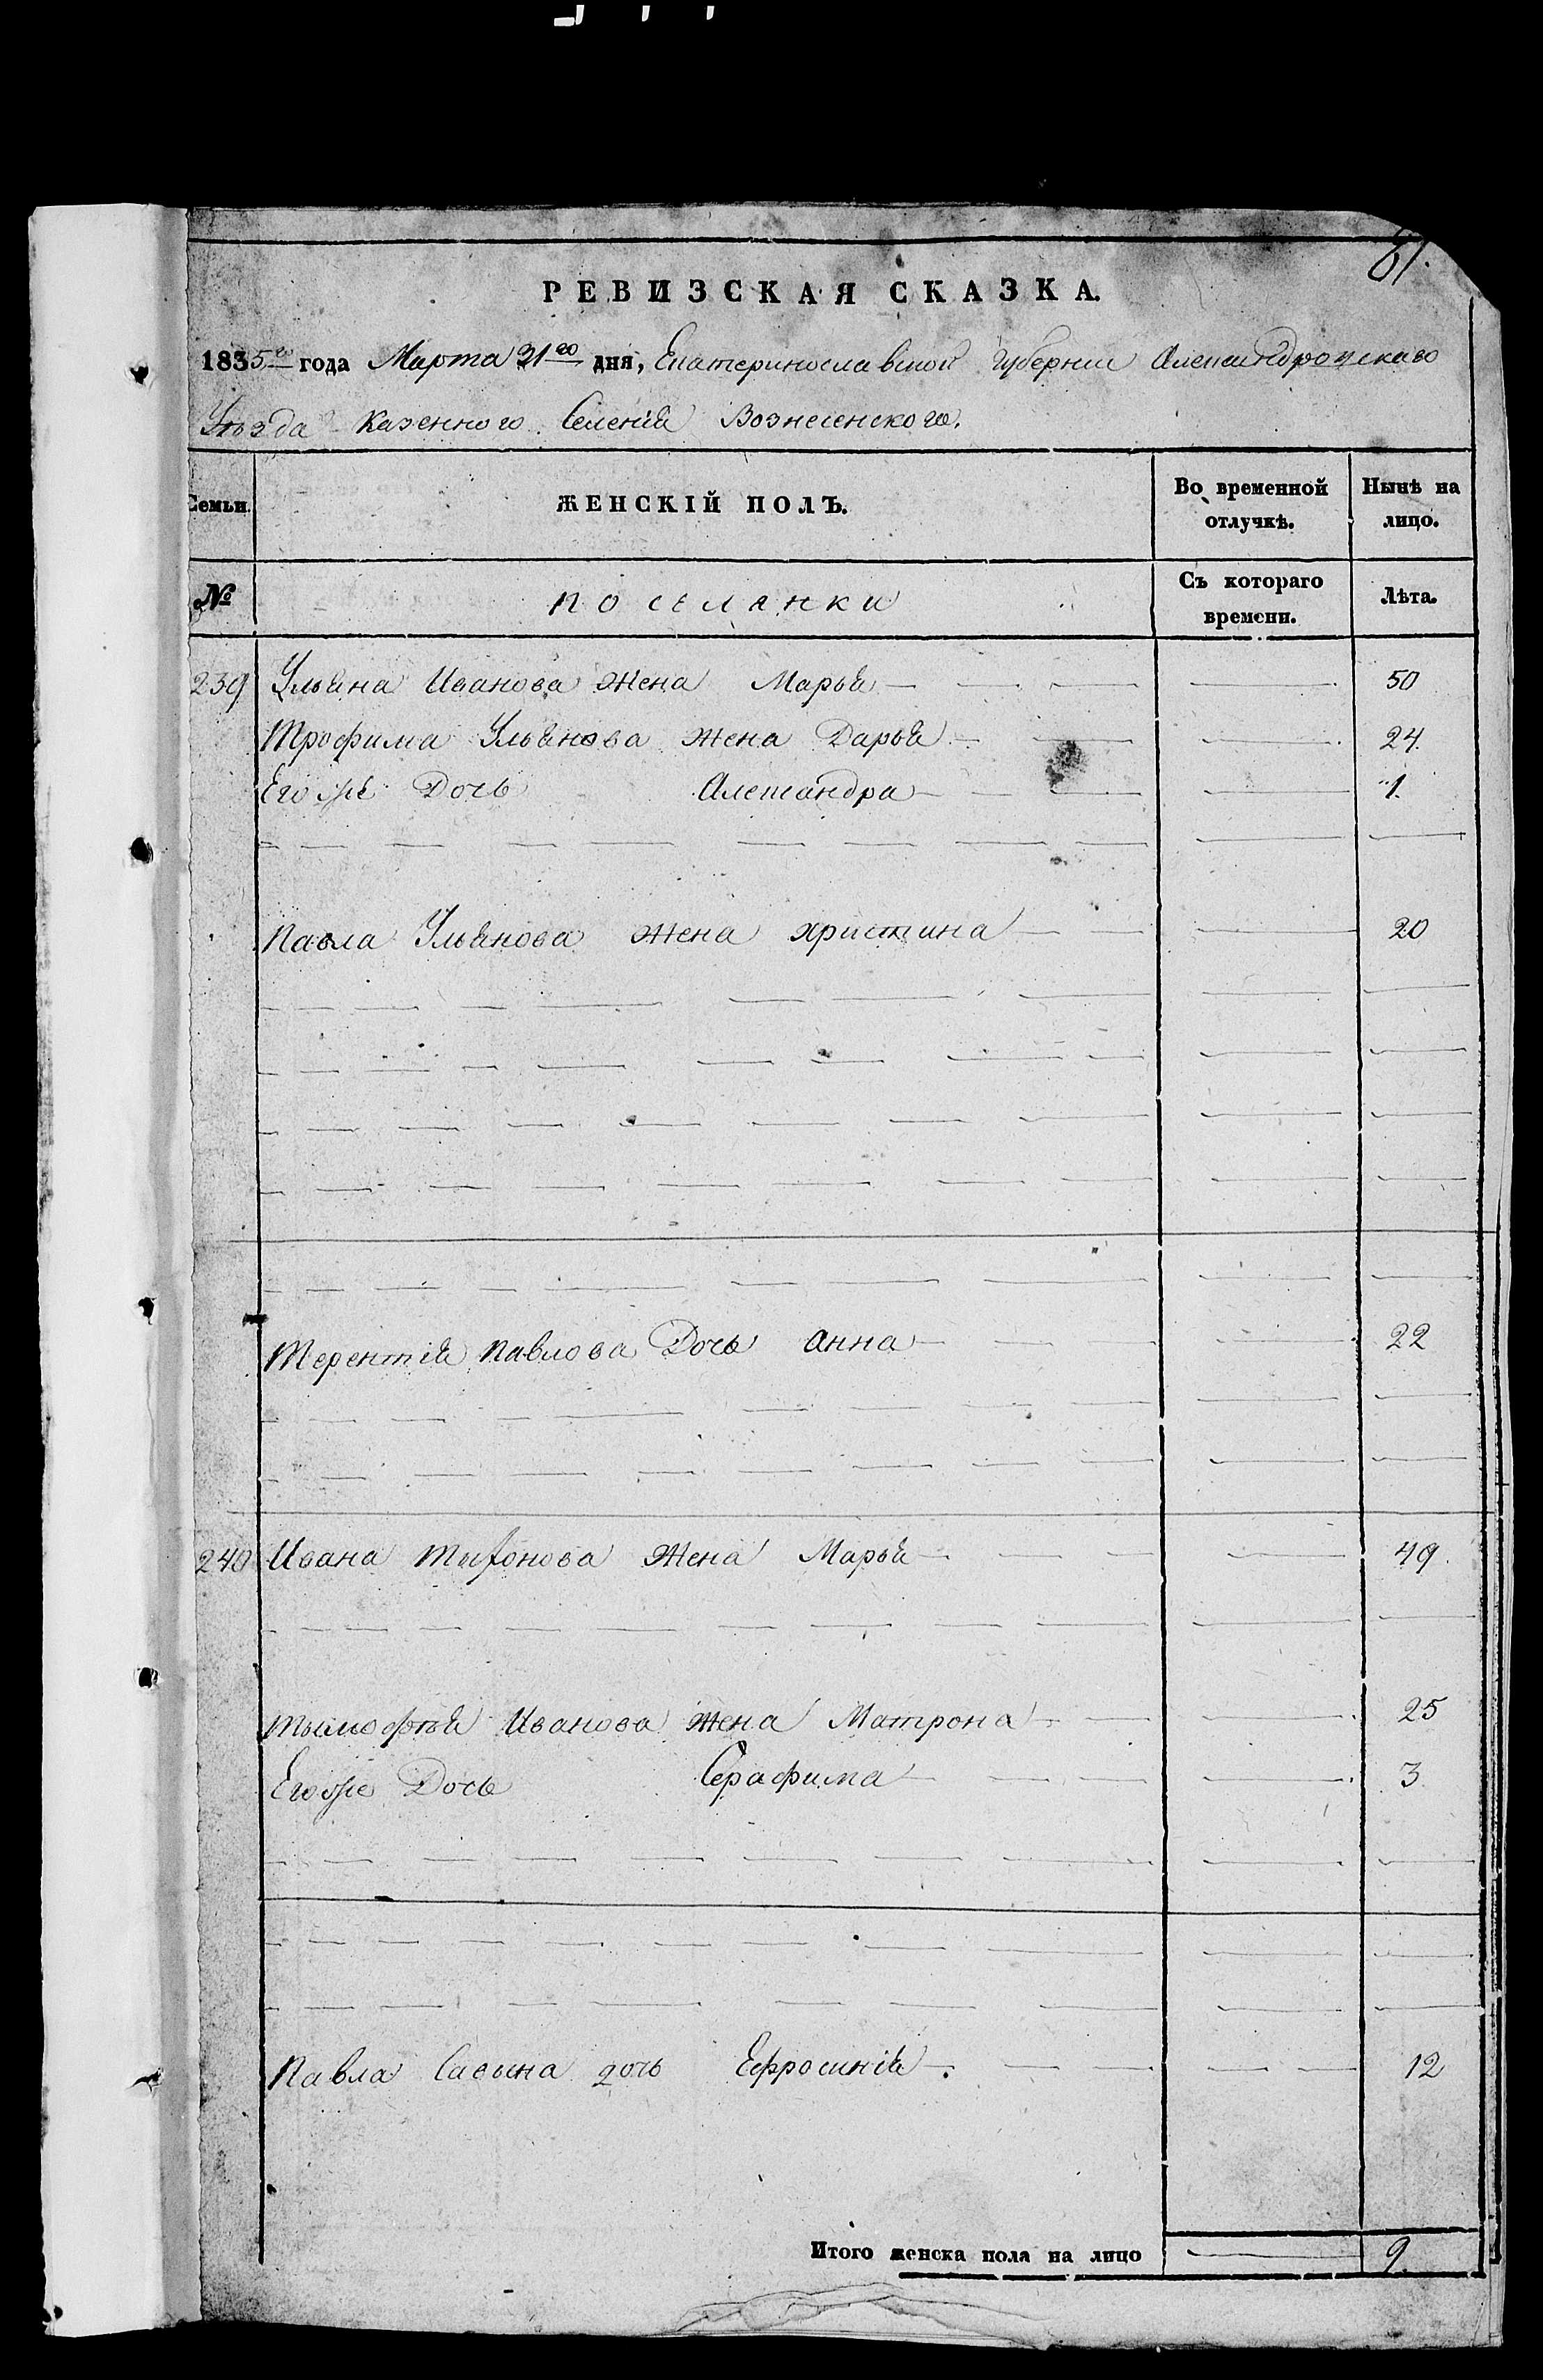 81.
РЕВИЗСКАЯ СКАЗКА.
1835го года Марта 31го дня, Екатеринославской Губернии Александровскаго
Уѣзда казенного Селенія Вознесенского.
Семьи. ЖЕНСКІЙ ПОЛЪ. Во временной отлучкѣ. Нынѣ на лицо.
№ поселянки Съ котораго времени. Лѣта.
239 Ульяна Иванова жена Марья 50
Трофима Ульянова жена Дарья 24.
Его же Дочь Александра 1.
Павла Ульянова жена Христина 20
Терентія Павлова Дочь Анна 22
240 Ивана Тихонова жена Марья 49.
Тымофѣя Иванова жена Матрона 25
Его же Дочь Серафима 3
Павла Савына дочь Ефросинія 12
Итого женска пола на лицо 9.